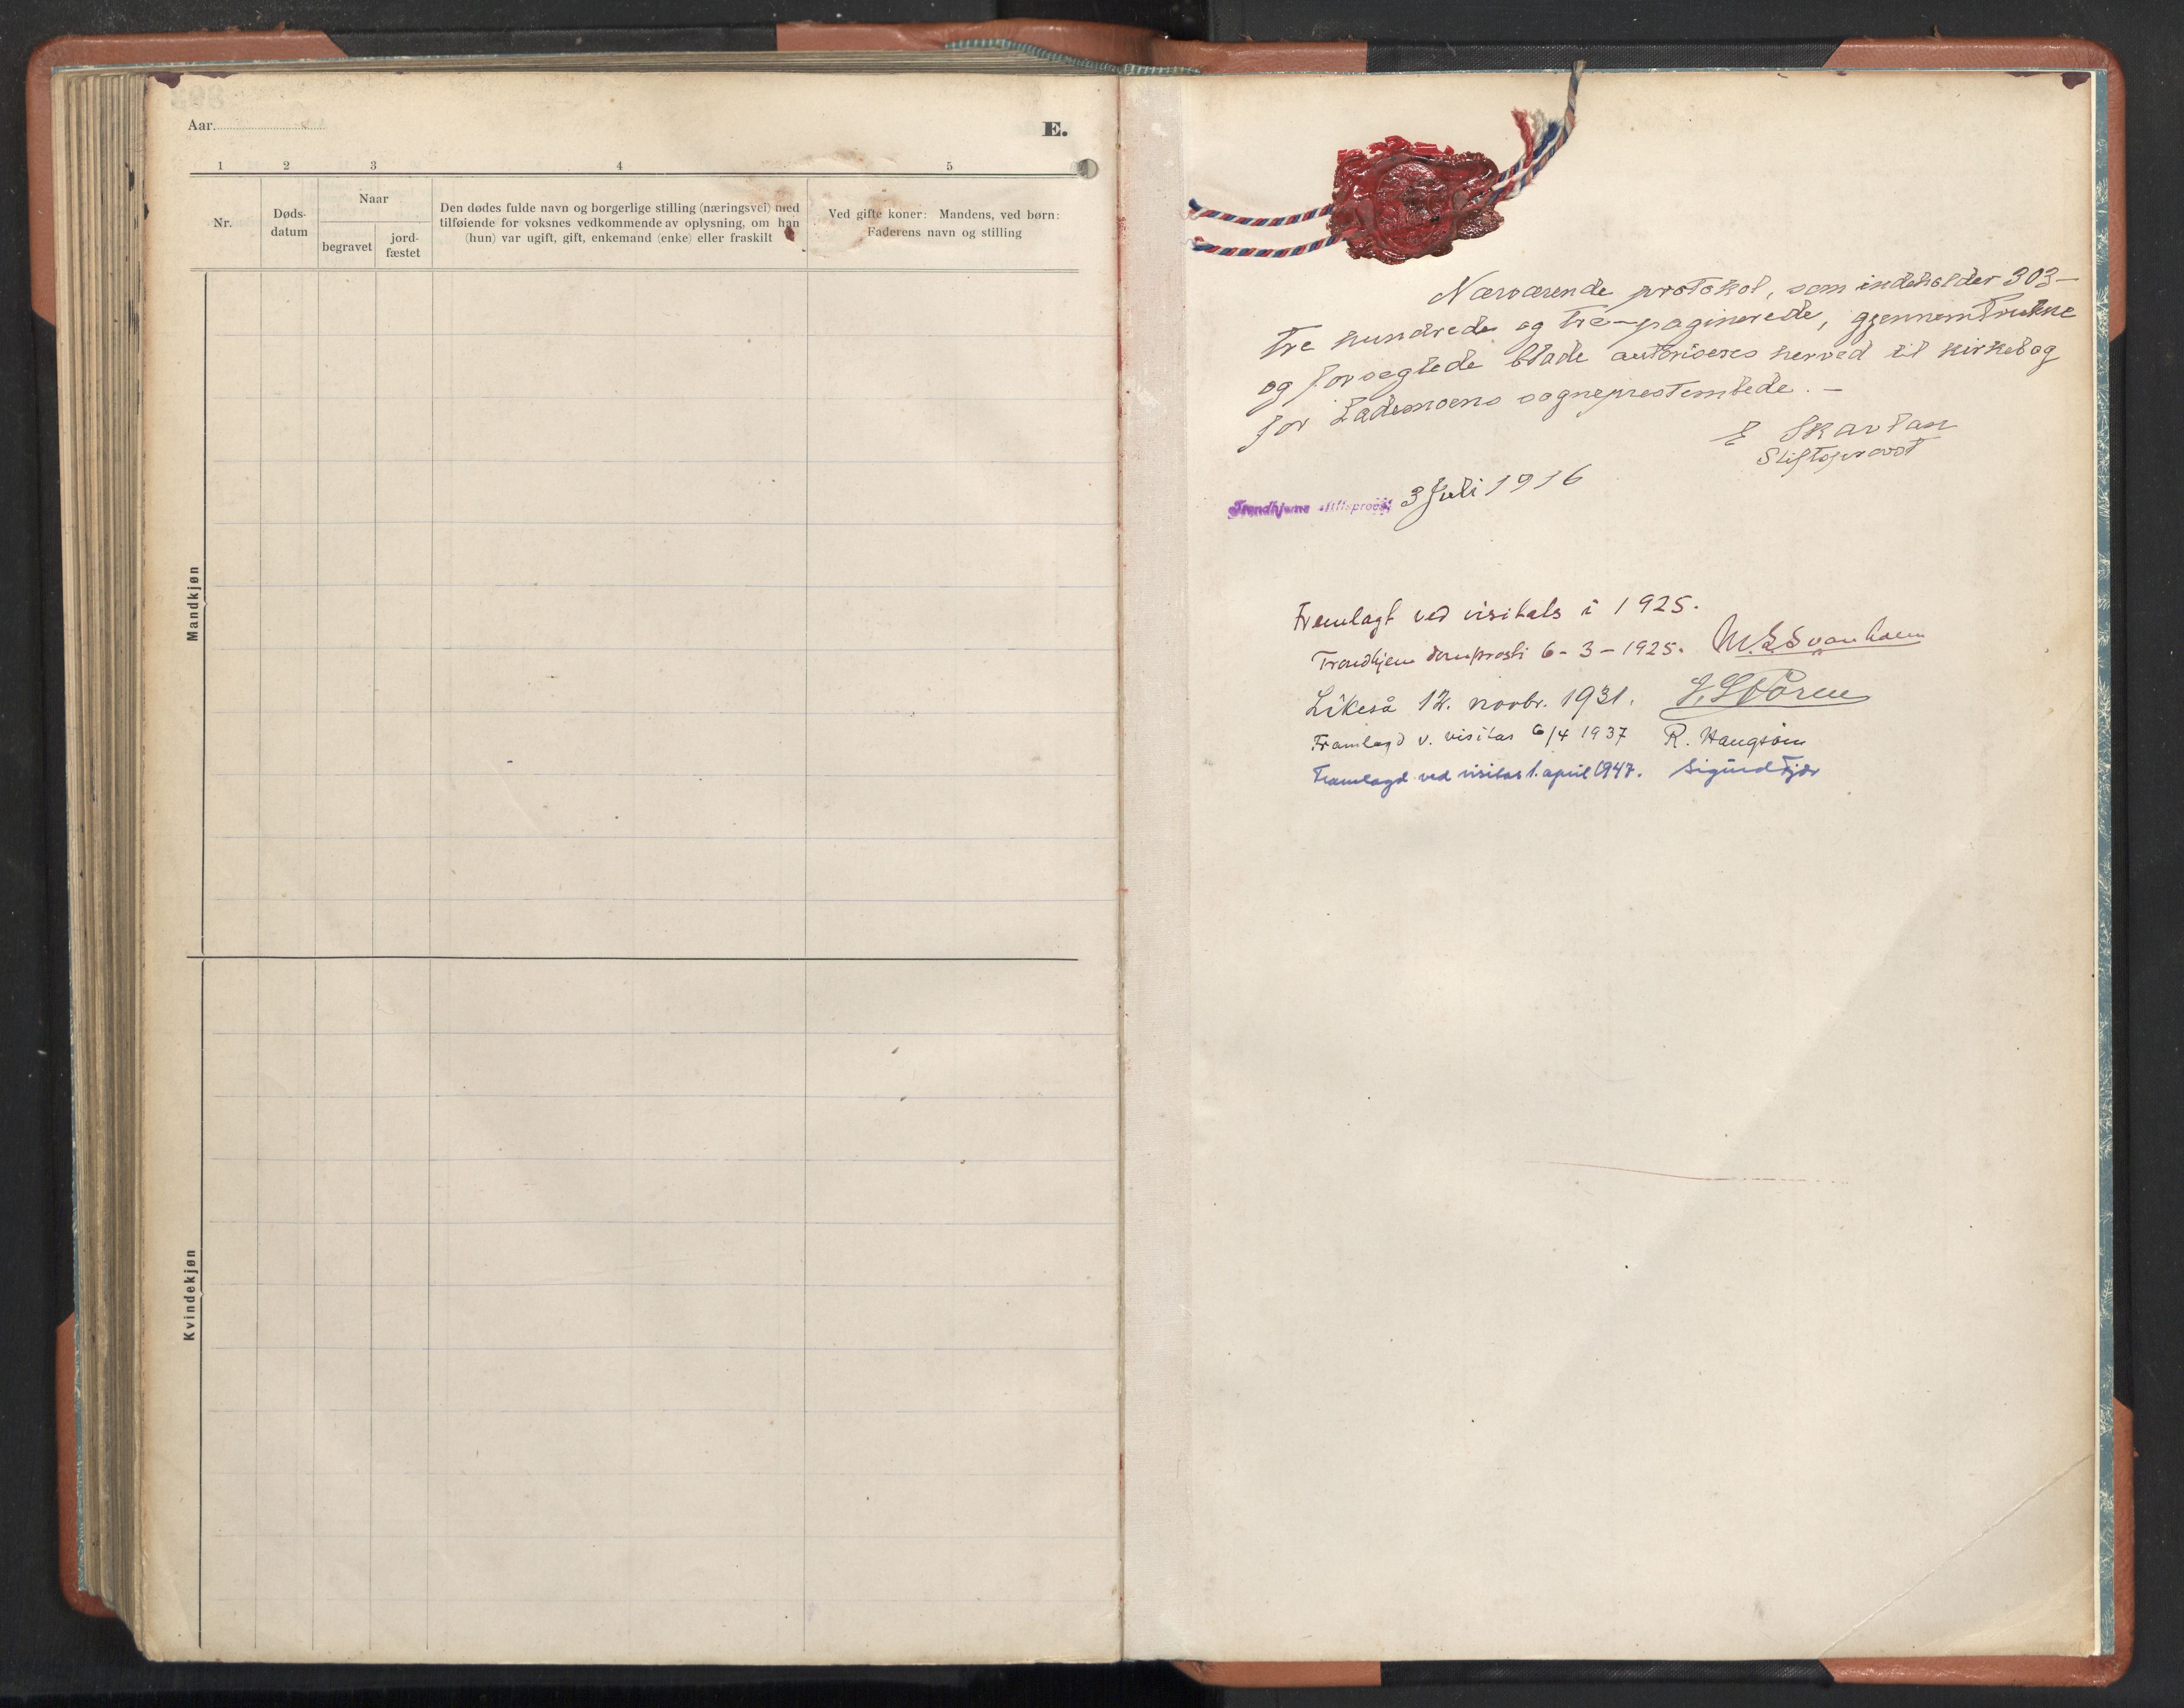 Aar.
E.
1 2 3 4 5
Nr.
Døds-
datum
Naar
begravet
jord-
fæstet
Den dødes fulde navn og borgerlige stilling (næringsvei) med
tilføiende for voksnes vedkommende av oplysning, om han
(hun) var ugift, gift, enkemand (enke) eller fraskilt
Ved gifte koner: Mandens, ved børn:
Faderens navn og stilling
Mandkjøn
Kvindekjøn
Nærværende protokol, som indeholder 303-
tre hundrede og tre-paginerede, gjennemtrukne
og forseglede blade autoriseres herved til kirkebog
for Lademoens sogneprestembede. -
E Skavlan
Stiftsprovst
Trondhjems stiftsprosti 3 Juli 1916
Fremlagt ved visitats i 1925.
Trondhjem domprosti 6-3-1925.
Likeså 12. novbr. 1931. J. Støren
Framlagd v. visitas 6/4 1937 R. Haugsøen
Framlagd ved visitas 1. april 1947. Sigurd Fjær